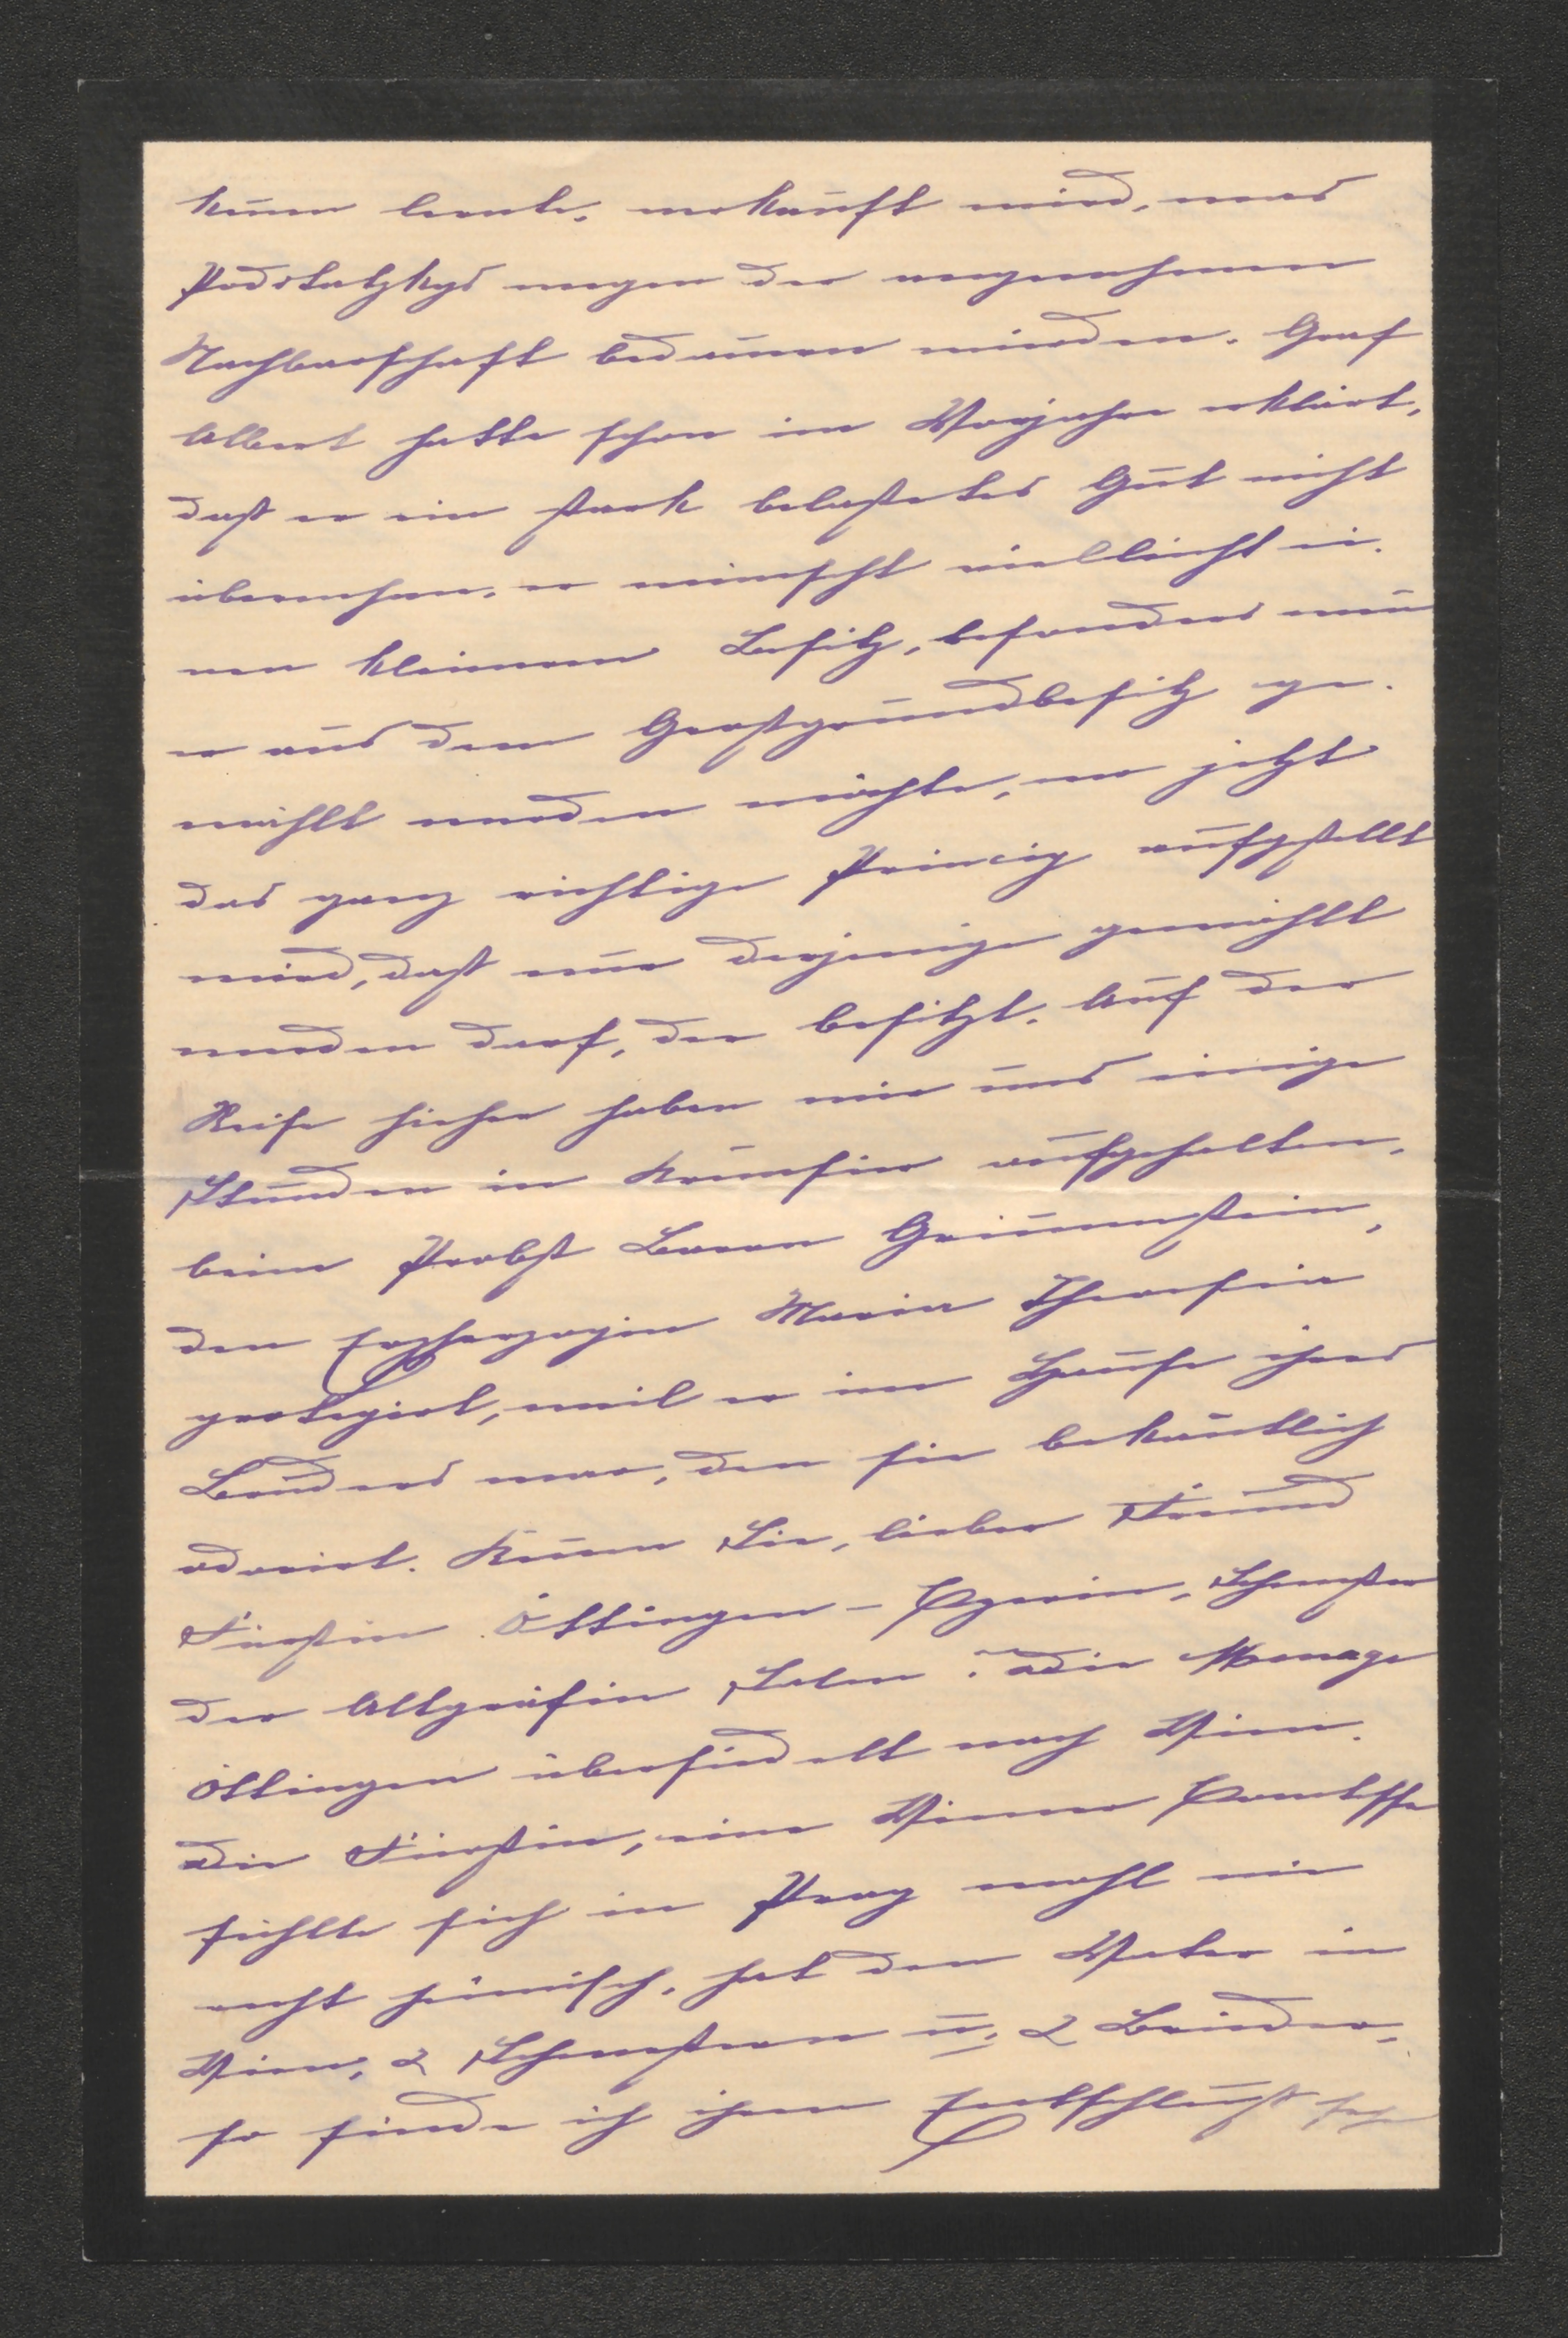 kenen lernte, verkauft wird, was
Podstatzkys wegen der angenehmen
Nachbarschaft bedauern würden. Graf
Albert hatte schon im Vorjahre erklärt,
daß er ein stark belastetes Gut nicht
übernehme, er wünscht vielleicht ei-
nen kleineren Besitz, besonders wen
er aus dem Großgrundbesitz ge-
wählt werden möchte, wo jetzt
das ganz richtige Princip aufgestellt
wird, daß nur derjenige gewählt
werden darf, der besitzt. Auf der
Reise hieher haben wir uns einige
Stunden in Kremsier aufgehalten,
beim Probst Baron Grimenstein,
den Erzherzogin Maria Theresia
protegirt, weil er im Hause ihres
Bruders war, den sie bekantlich
adorirt. Kenen Sie, lieber Freund
Fürstin Öttingen - Czernin, Schwester
der Altgräfin Salm? Die Menage
Öttingen übersiedelt nach Wien.
Die Fürstin, eine Wiener Comtesse
fühlte sich in Prag wohl nie
recht heimisch, hat den Vater in
Wien, 2 Schwestern u. 2 Brüder,
so finde ich ihren Entschluß sehr